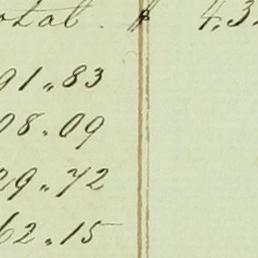 otal. $ 4,3
91.83
08.09
29.72
62.15